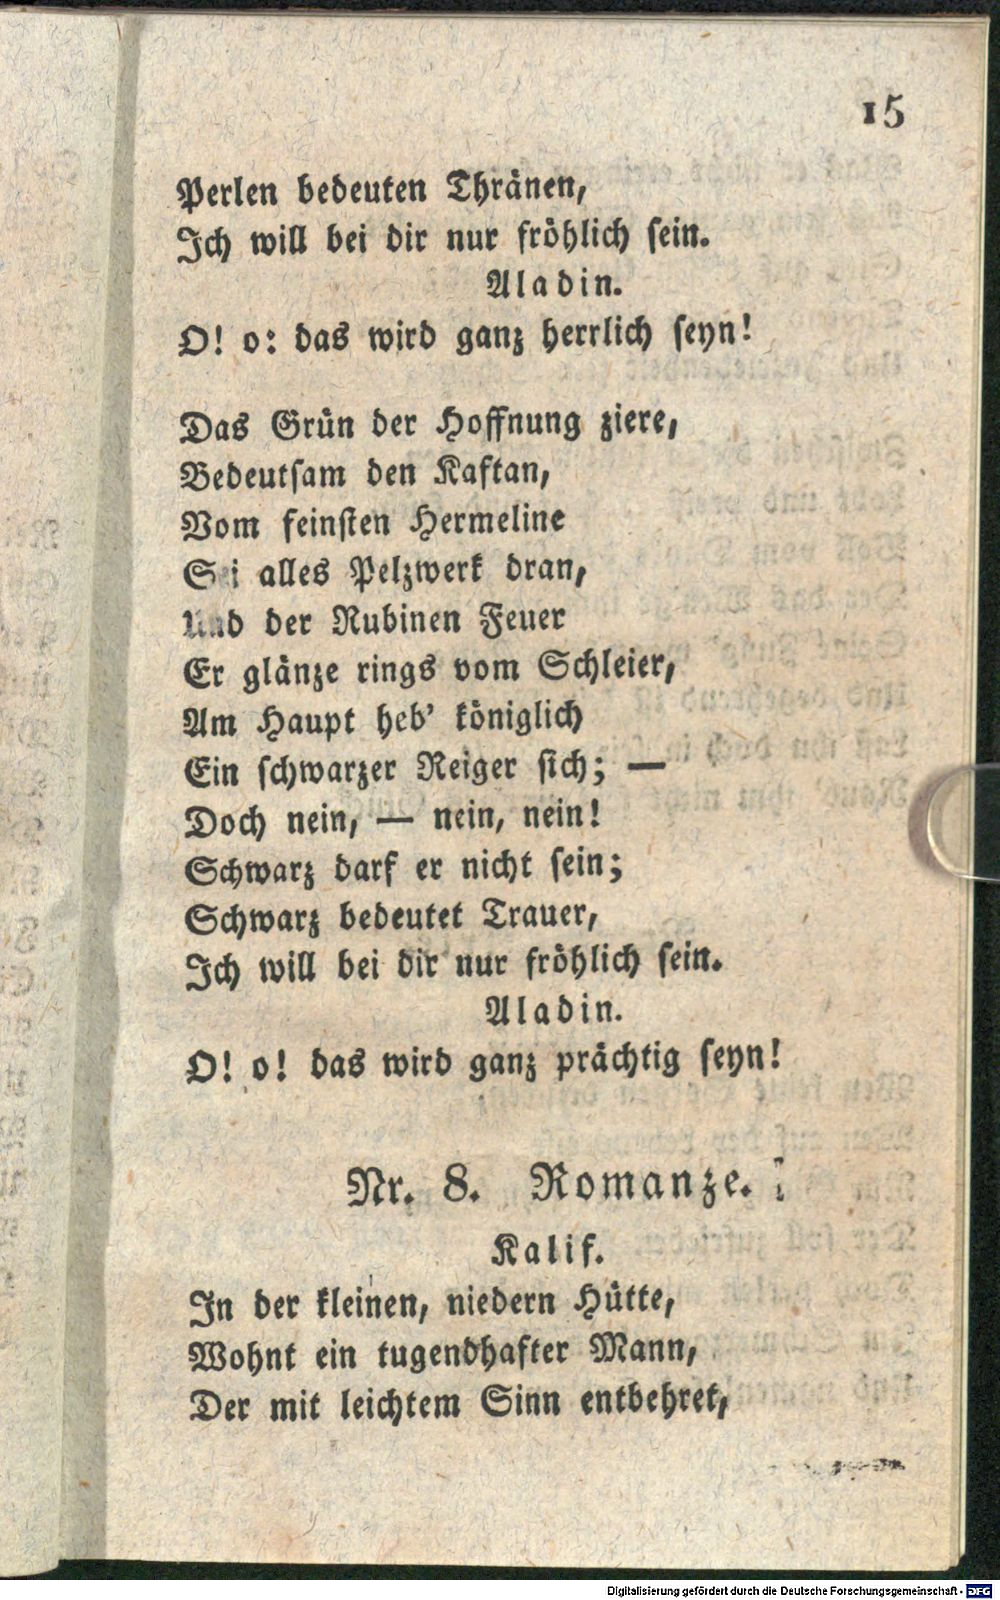 15
Perlen bedeuten Thränen,
Ich will bei dir nur fröhlich sein.
Aladin.
O! o: das wird ganz herrlich seyn!
Das Grün der Hoffnung ziere,
Bedeutsam den Kaftan,
Vom feinsten Hermeline
Sei alles Pelzwerk dran,
Und der Rubinen Feuer
Er glänze rings vom Schleier,
Am Haupt heb' königlich
Ein schwarzer Reiger sich; —
Doch nein, — nein, nein!
Schwarz darf er nicht sein;
Schwarz bedeutet Trauer,
Ich will bei dir nur fröhlich sein.
Aladin.
O! o! das wird ganz prächtig seyn!
Nr. 8. Romanze.
Kalif.
In der kleinen, niedern Hütte,
Wohnt ein tugendhafter Mann,
Der mit leichtem Sinn entbehret,
Digitalisierung gefördert durch die Deutsche Forschungsgemeinschaft - DFG